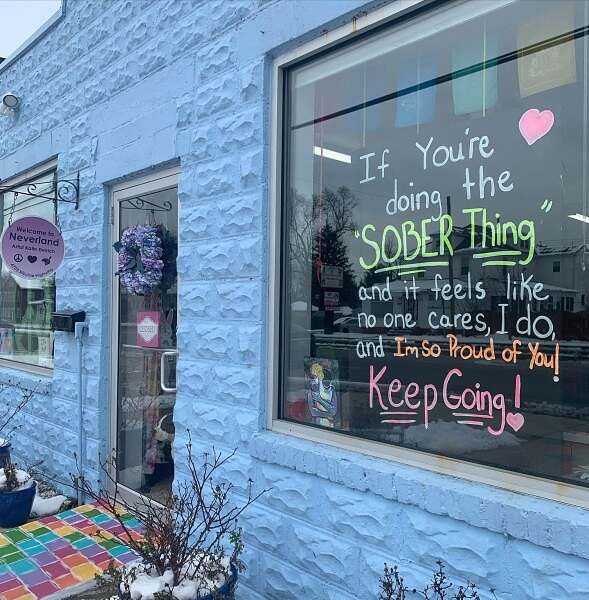 If You're
doing the
"SOBER Thing"
and it feels like
no one cares, I do,
and I'm so Proud of You!
Keep Going!
Welcome to
Neverland